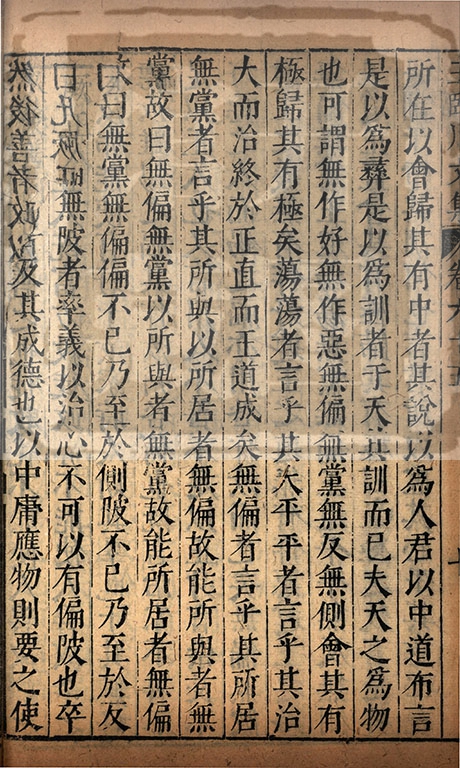 王臨川文集 卷六十五
所在以會歸其有中者其說以爲人君以中道布言
是以爲彞是以爲訓者于天其訓而已夫天之爲物
也可謂無作好無作惡無偏無黨無反無側會其有
極歸其有極矣蕩蕩者言乎其大平平者言乎其治
大而治終於正直而王道成矣無偏者言乎其所居
無黨者言乎其所與以所居者無偏故能所與者無
黨故曰無偏無黨以所與者無黨故能所居者無偏
曰無黨無偏偏不已乃至於側陂不已乃至於反
曰凡厥無陂者率義以治心不可以有偏陂也卒
然後善者政以及其成德也以中庸應物則要之使